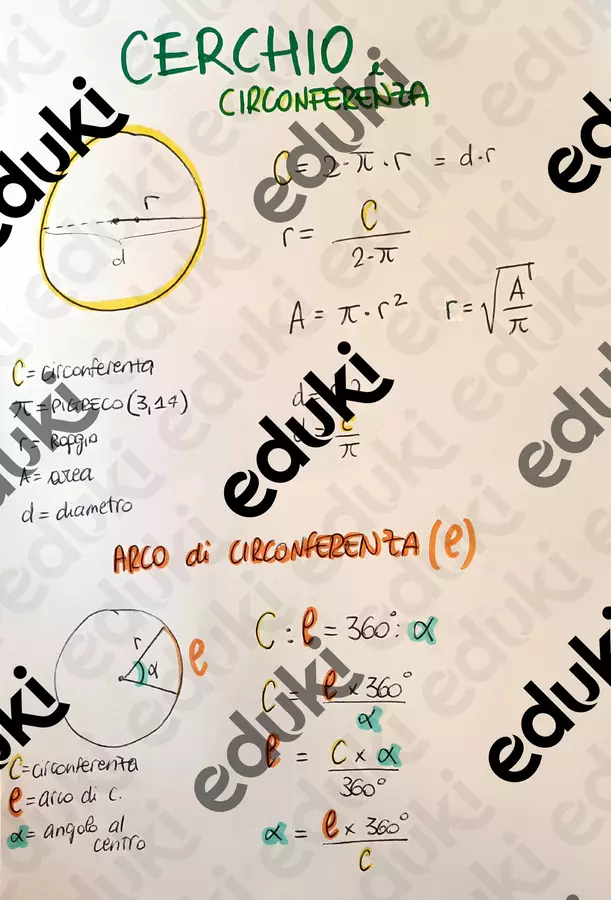 CERCHIO e
CIRCONFERENZA
C = 2·π·r = d·r
r = C / 2·π
A = π·r² r = √A/π
r
d
C = circonferenza
π = PIGRECO (3,14)
r = Raggio
A = area
d = diametro
d =
d = C / π
ARCO di CIRCONFERENZA (l)
r
α
l
C : l = 360° : α
C = l × 360° / α
l = C × α / 360°
α = l × 360° / C
C = circonferenza
l = arco di C.
α = angolo al
centro
eduki
eduki
eduki
eduki
eduki
eduki
eduki
eduki
eduki